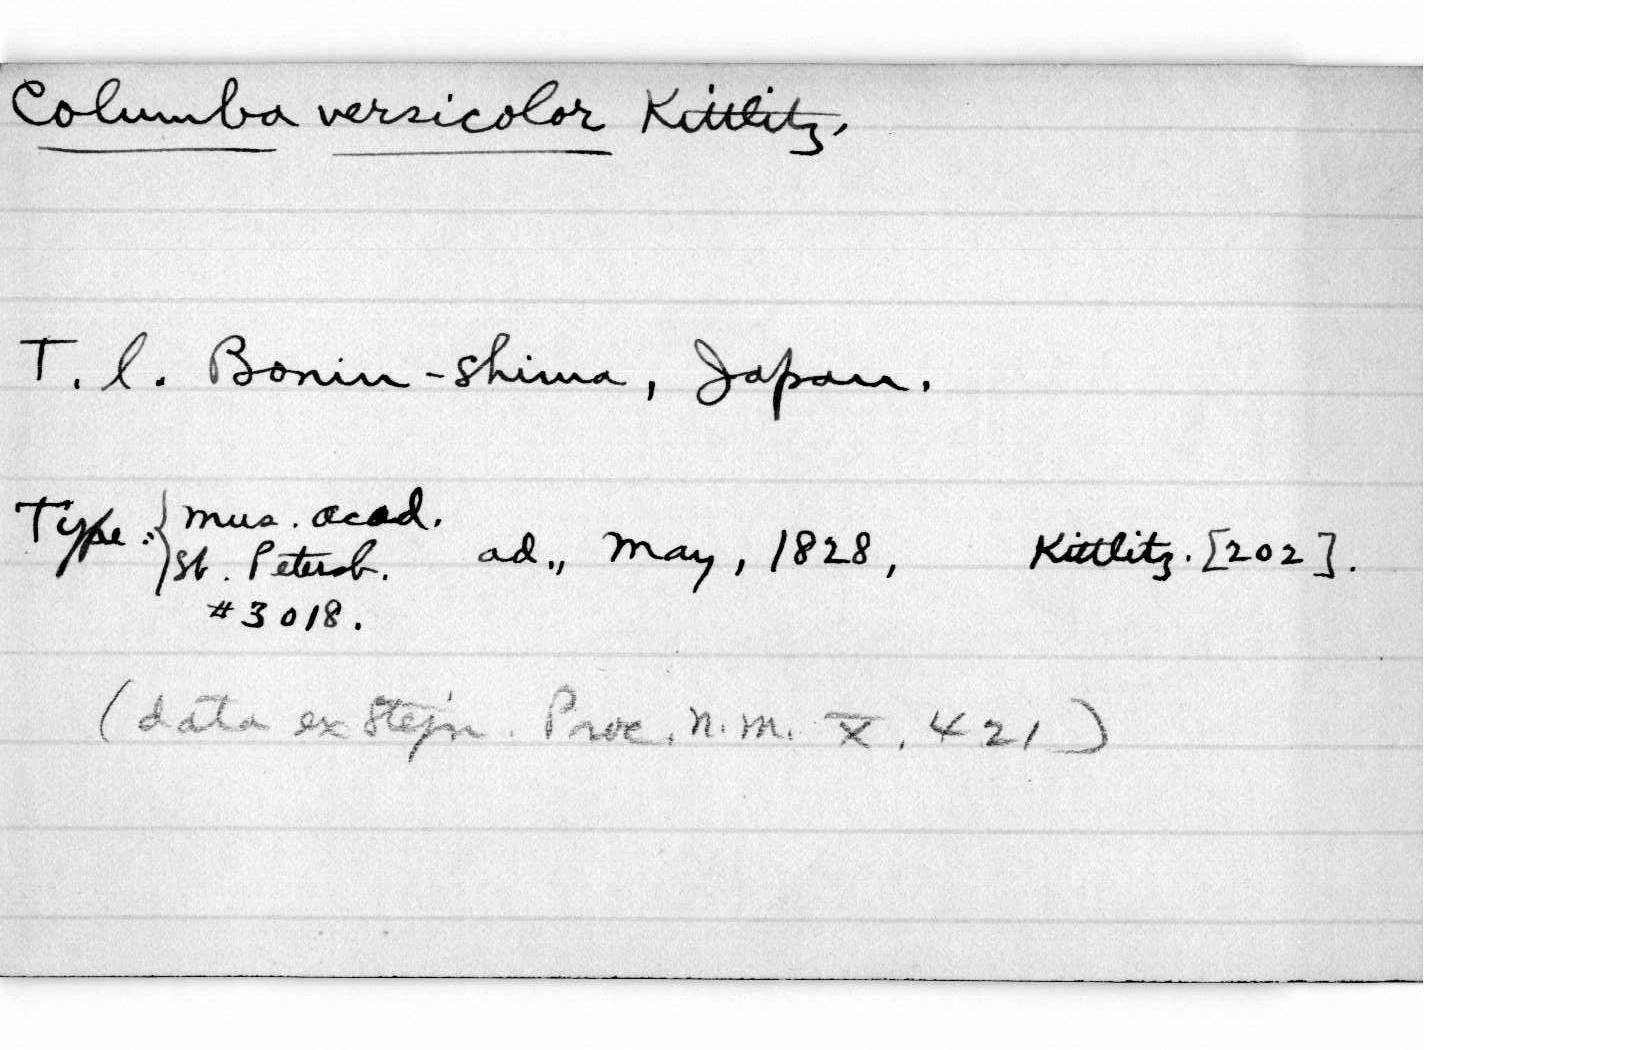 Columba versicolor Kittlitz,
T. l. Bonin-shima, Japan.
Type: { Mus. Acad.
St. Petersb. ad., May, 1828, Kittlitz. [202].
#3018.
(data ex Stejn. Proc. N.M. X, 421)